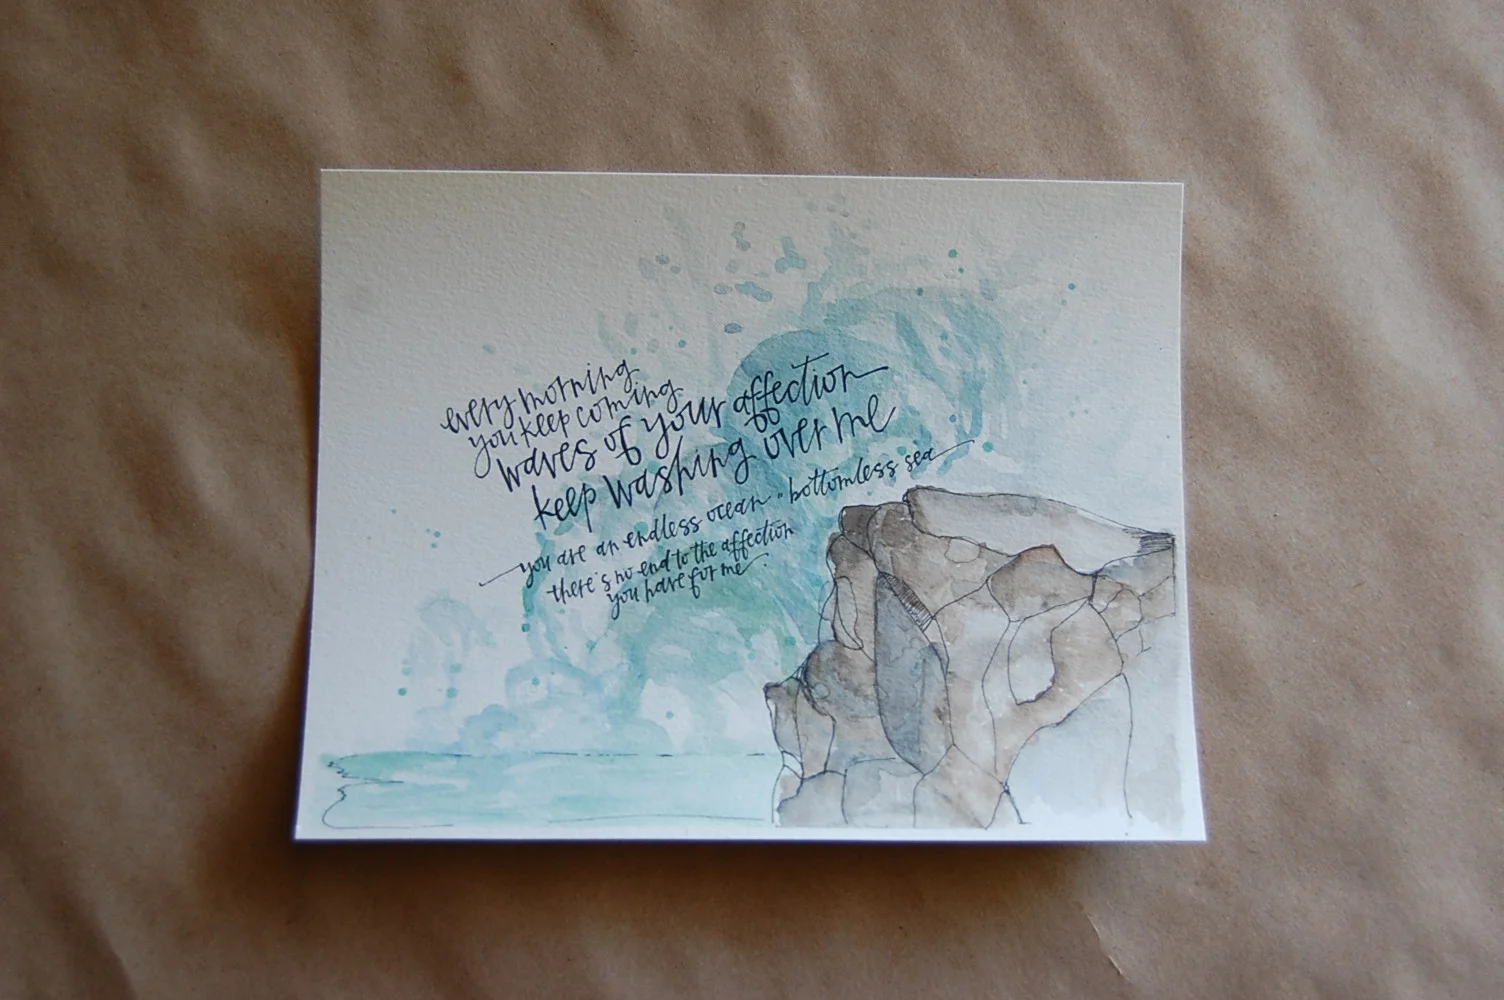 every morning
you keep coming
waves of your affection
keep washing over me
you are an endless ocean • bottomless sea
there's no end to the affection
you have for me.